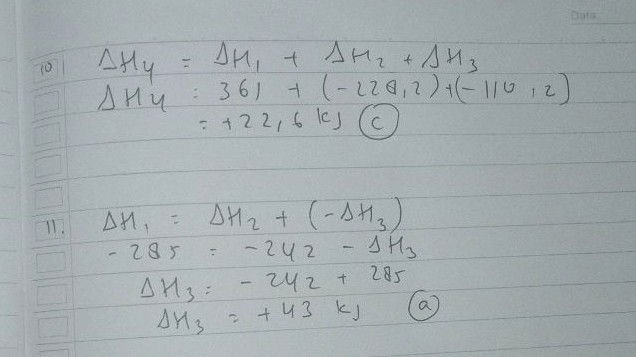 Data
10 ΔH4 = ΔH1 + ΔH2 + ΔH3
ΔH4 = 361 + (-228,2) + (-110,2)
= +22,6 kJ (c)
11. ΔH1 = ΔH2 + (-ΔH3)
-285 = -242 - ΔH3
ΔH3 = -242 + 285
ΔH3 = +43 kJ (a)